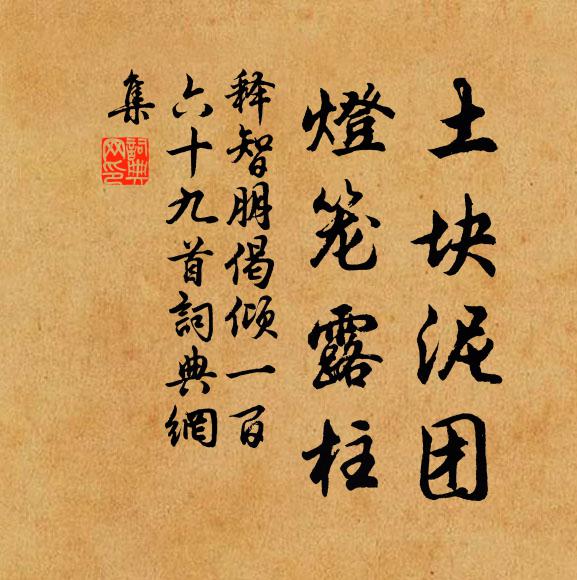 土块泥团
燈笼露柱
释智朋偈倾一百
六十九首詞典網
集
詞典网印